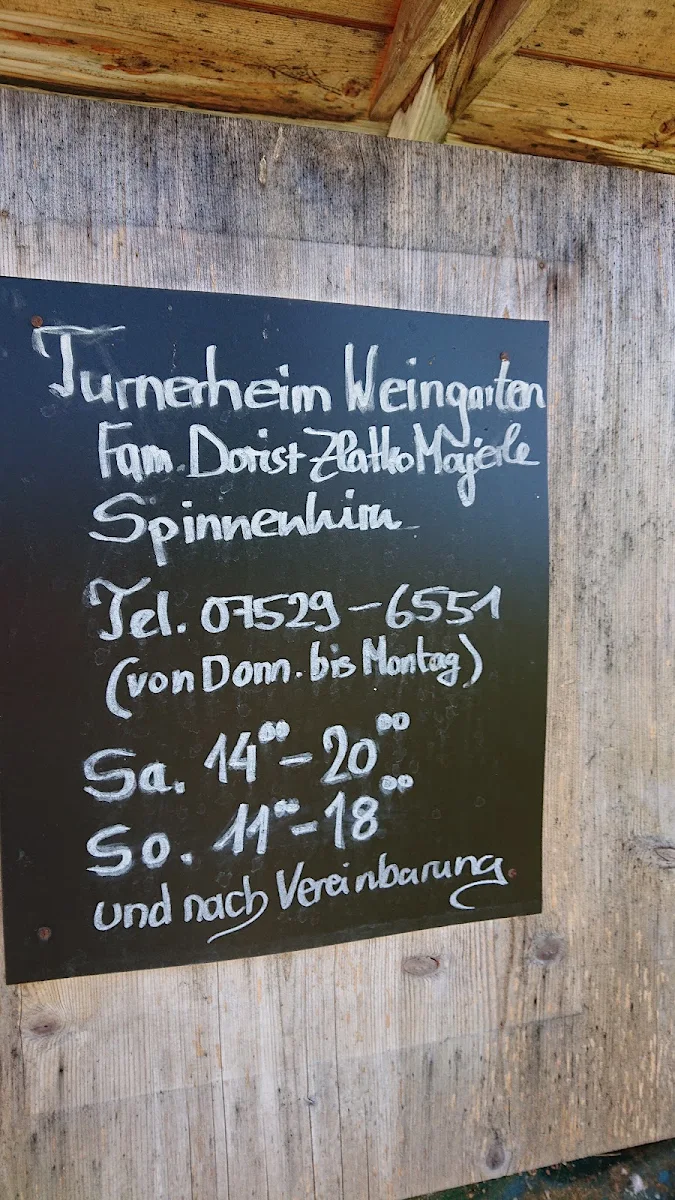 Turnerheim Weingarten
Fam. Doris+Zlatko Majerle
Spinnenhirn
Tel. 07529-6551
(von Donn. bis Montag)
Sa. 14⁰⁰-20⁰⁰
So. 11⁰⁰-18⁰⁰
und nach Vereinbarung